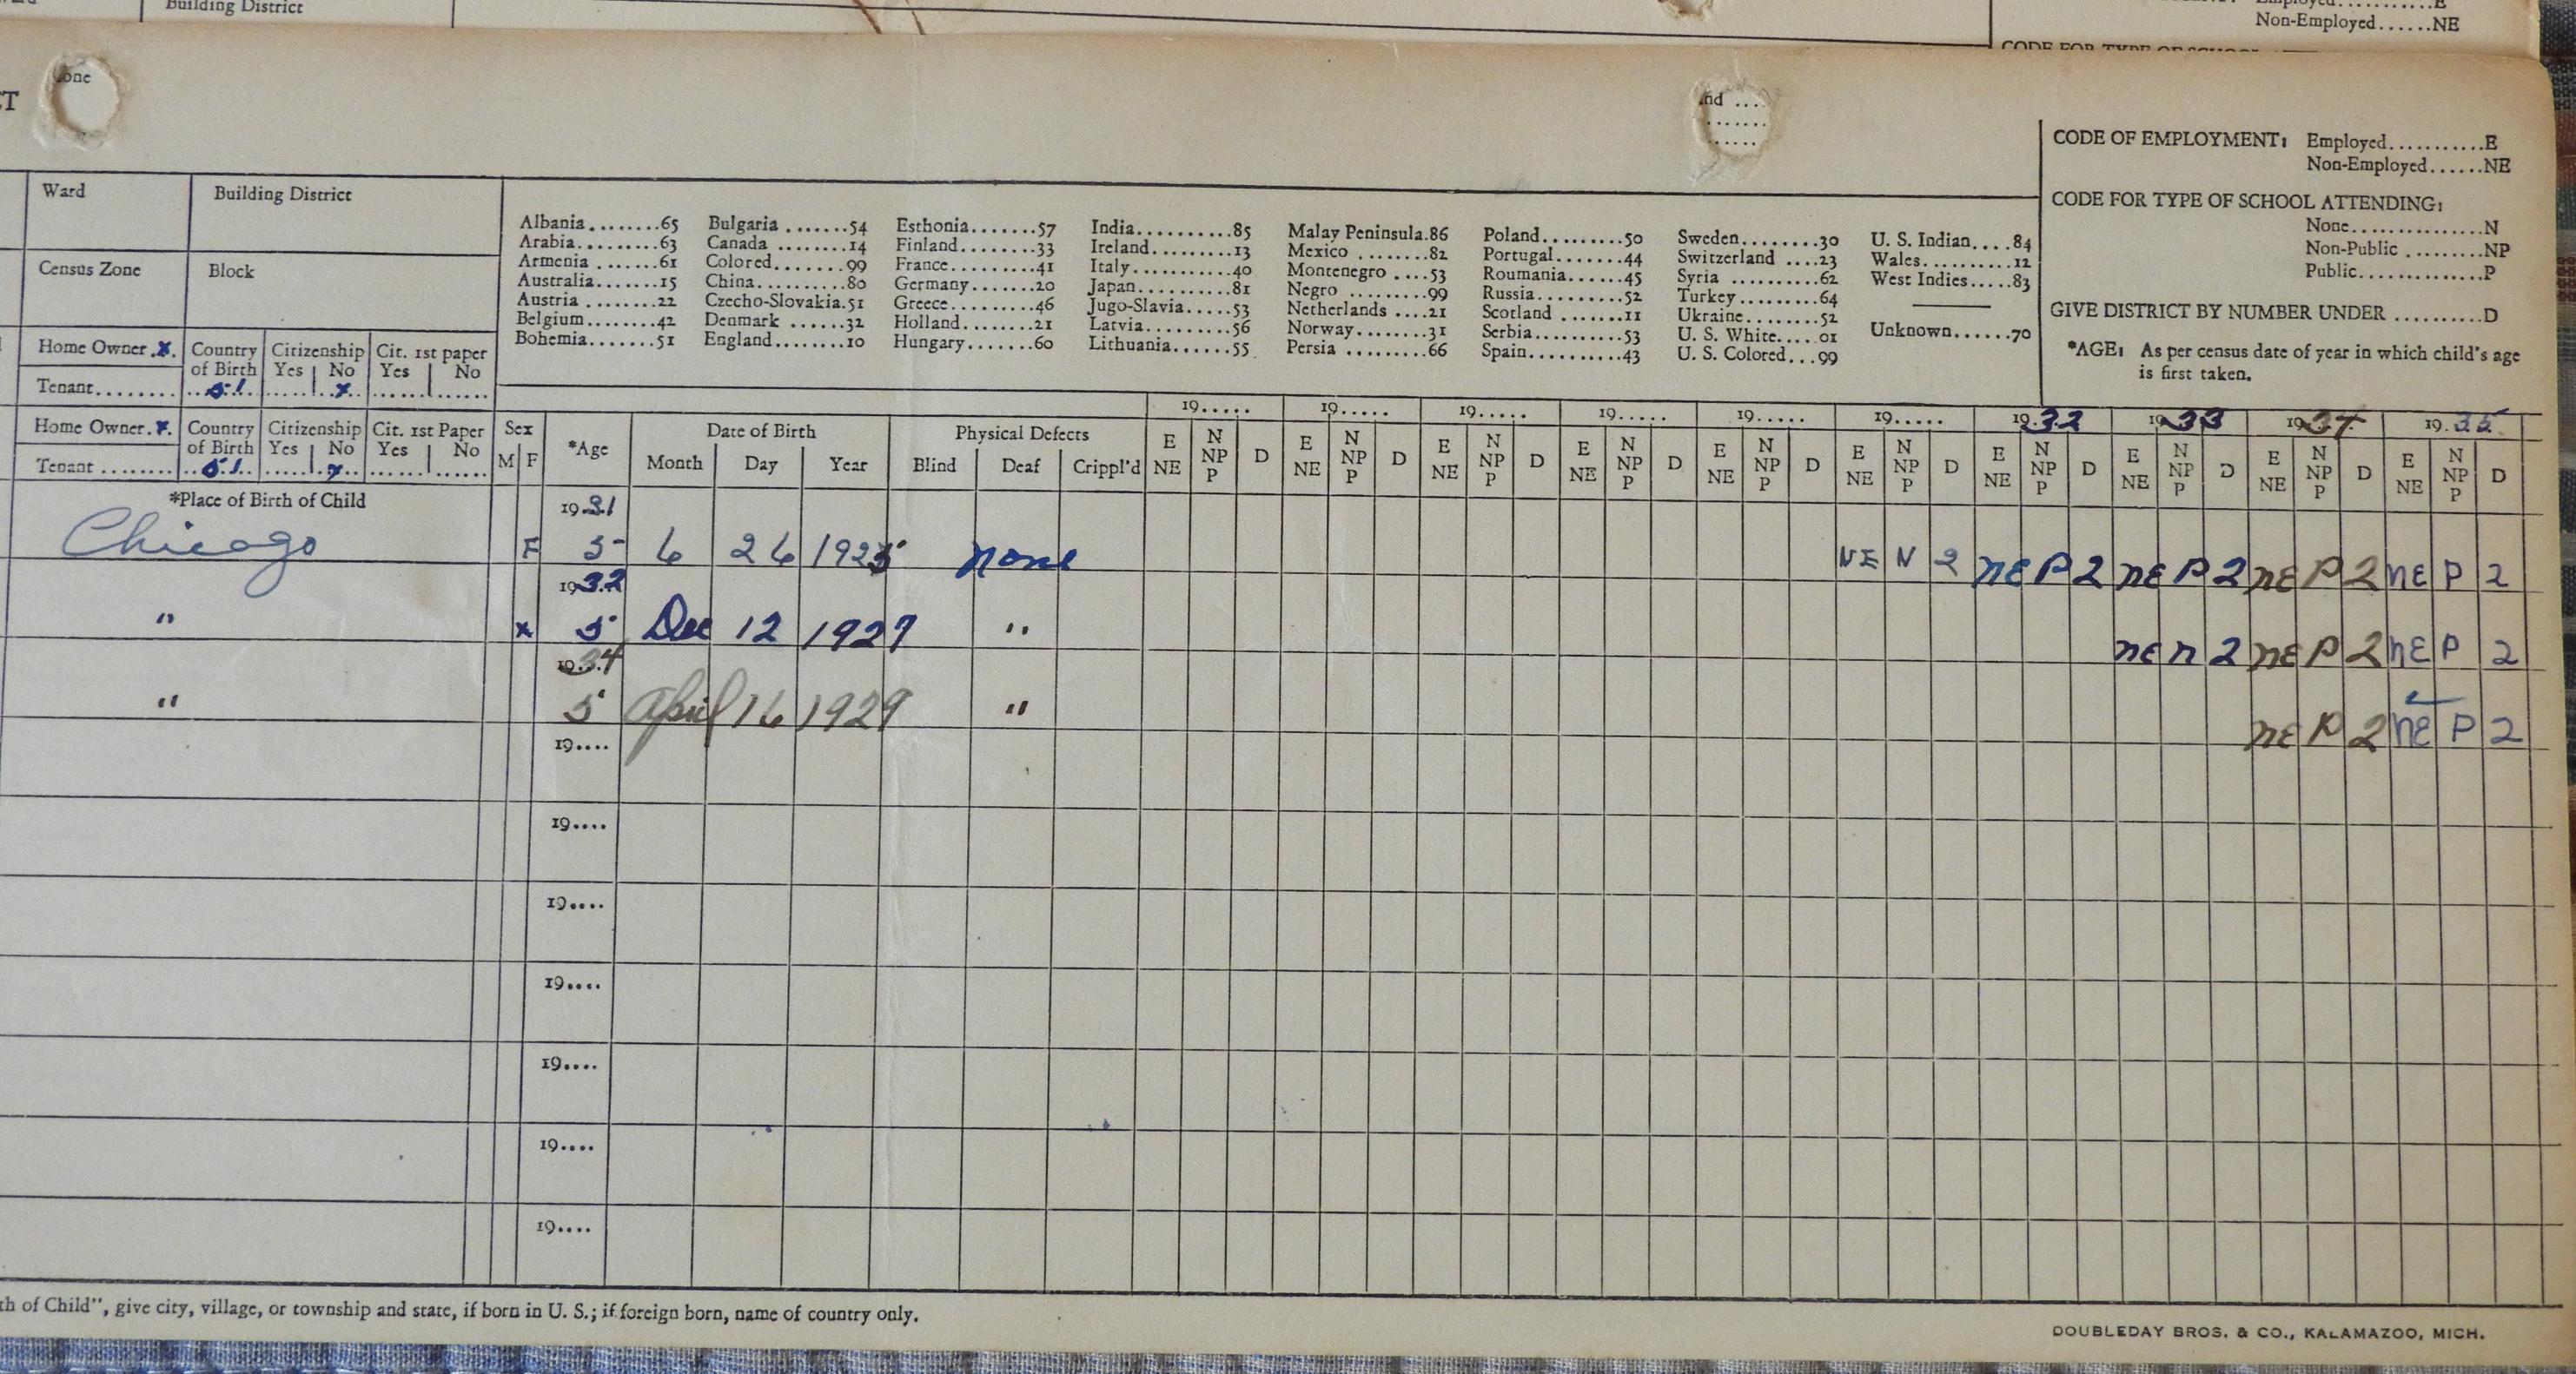 Building District
Employed..........E
Non-Employed......NE
CODE FOR TYPE OF SCHOOL
one
CT
nd ....
CODE OF EMPLOYMENT: Employed...........E
Non-Employed......NE
CODE FOR TYPE OF SCHOOL ATTENDING:
None...............N
Non-Public .........NP
Public..............P
GIVE DISTRICT BY NUMBER UNDER ..........D
*AGE: As per census date of year in which child's age
is first taken.
Ward Building District
Census Zone Block
Albania........65 Bulgaria .......54 Esthonia.......57 India...........85 Malay Peninsula.86 Poland.........50 Sweden........30 U. S. Indian....84
Arabia.........63 Canada ........14 Finland........33 Ireland.........13 Mexico ........82 Portugal.......44 Switzerland ....23 Wales..........12
Armenia .......61 Colored........99 France.........41 Italy...........40 Montenegro ....53 Roumania......45 Syria ..........62 West Indies.....83
Australia.......15 China..........80 Germany.......20 Japan..........81 Negro .........99 Russia.........52 Turkey.........64
Austria ........22 Czecho-Slovakia.51 Greece.........46 Jugo-Slavia.....53 Netherlands ....21 Scotland .......11 Ukraine........52 Unknown......70
Belgium........42 Denmark ......32 Holland........21 Latvia..........56 Norway........31 Serbia.........53 U. S. White....01
Bohemia.......51 England........10 Hungary.......60 Lithuania......55 Persia .........66 Spain..........43 U. S. Colored...99
Home Owner.X. Country of Birth Citizenship Yes No Cit. 1st paper Yes No
Tenant........ 51 x
19..... 19..... 19..... 19..... 19..... 19..... 1932 1933 1934 1935
Home Owner.X. Country of Birth Citizenship Yes No Cit. 1st Paper Yes No Sex M F *Age Date of Birth Month Day Year Physical Defects Blind Deaf Crippl'd E NE N NP P D E NE N NP P D E NE N NP P D E NE N NP P D E NE N NP P D E NE N NP P D E NE N NP P D E NE N NP P D E NE N NP P D E NE N NP P D
Tenant ........ 51 x
*Place of Birth of Child 1931
Chicago F 5 6 26 1925 none NE N 2 NE P 2 NE P 2 NE P 2 NE P 2
1932
" x 5 Dec 12 1927 " NE N 2 NE P 2 NE P 2
1934
" 5 April 16 1929 " NE P 2 NE P 2
19....
19....
19....
19....
19....
19....
19....
th of Child", give city, village, or township and state, if born in U. S.; if foreign born, name of country only.
DOUBLEDAY BROS. & CO., KALAMAZOO, MICH.